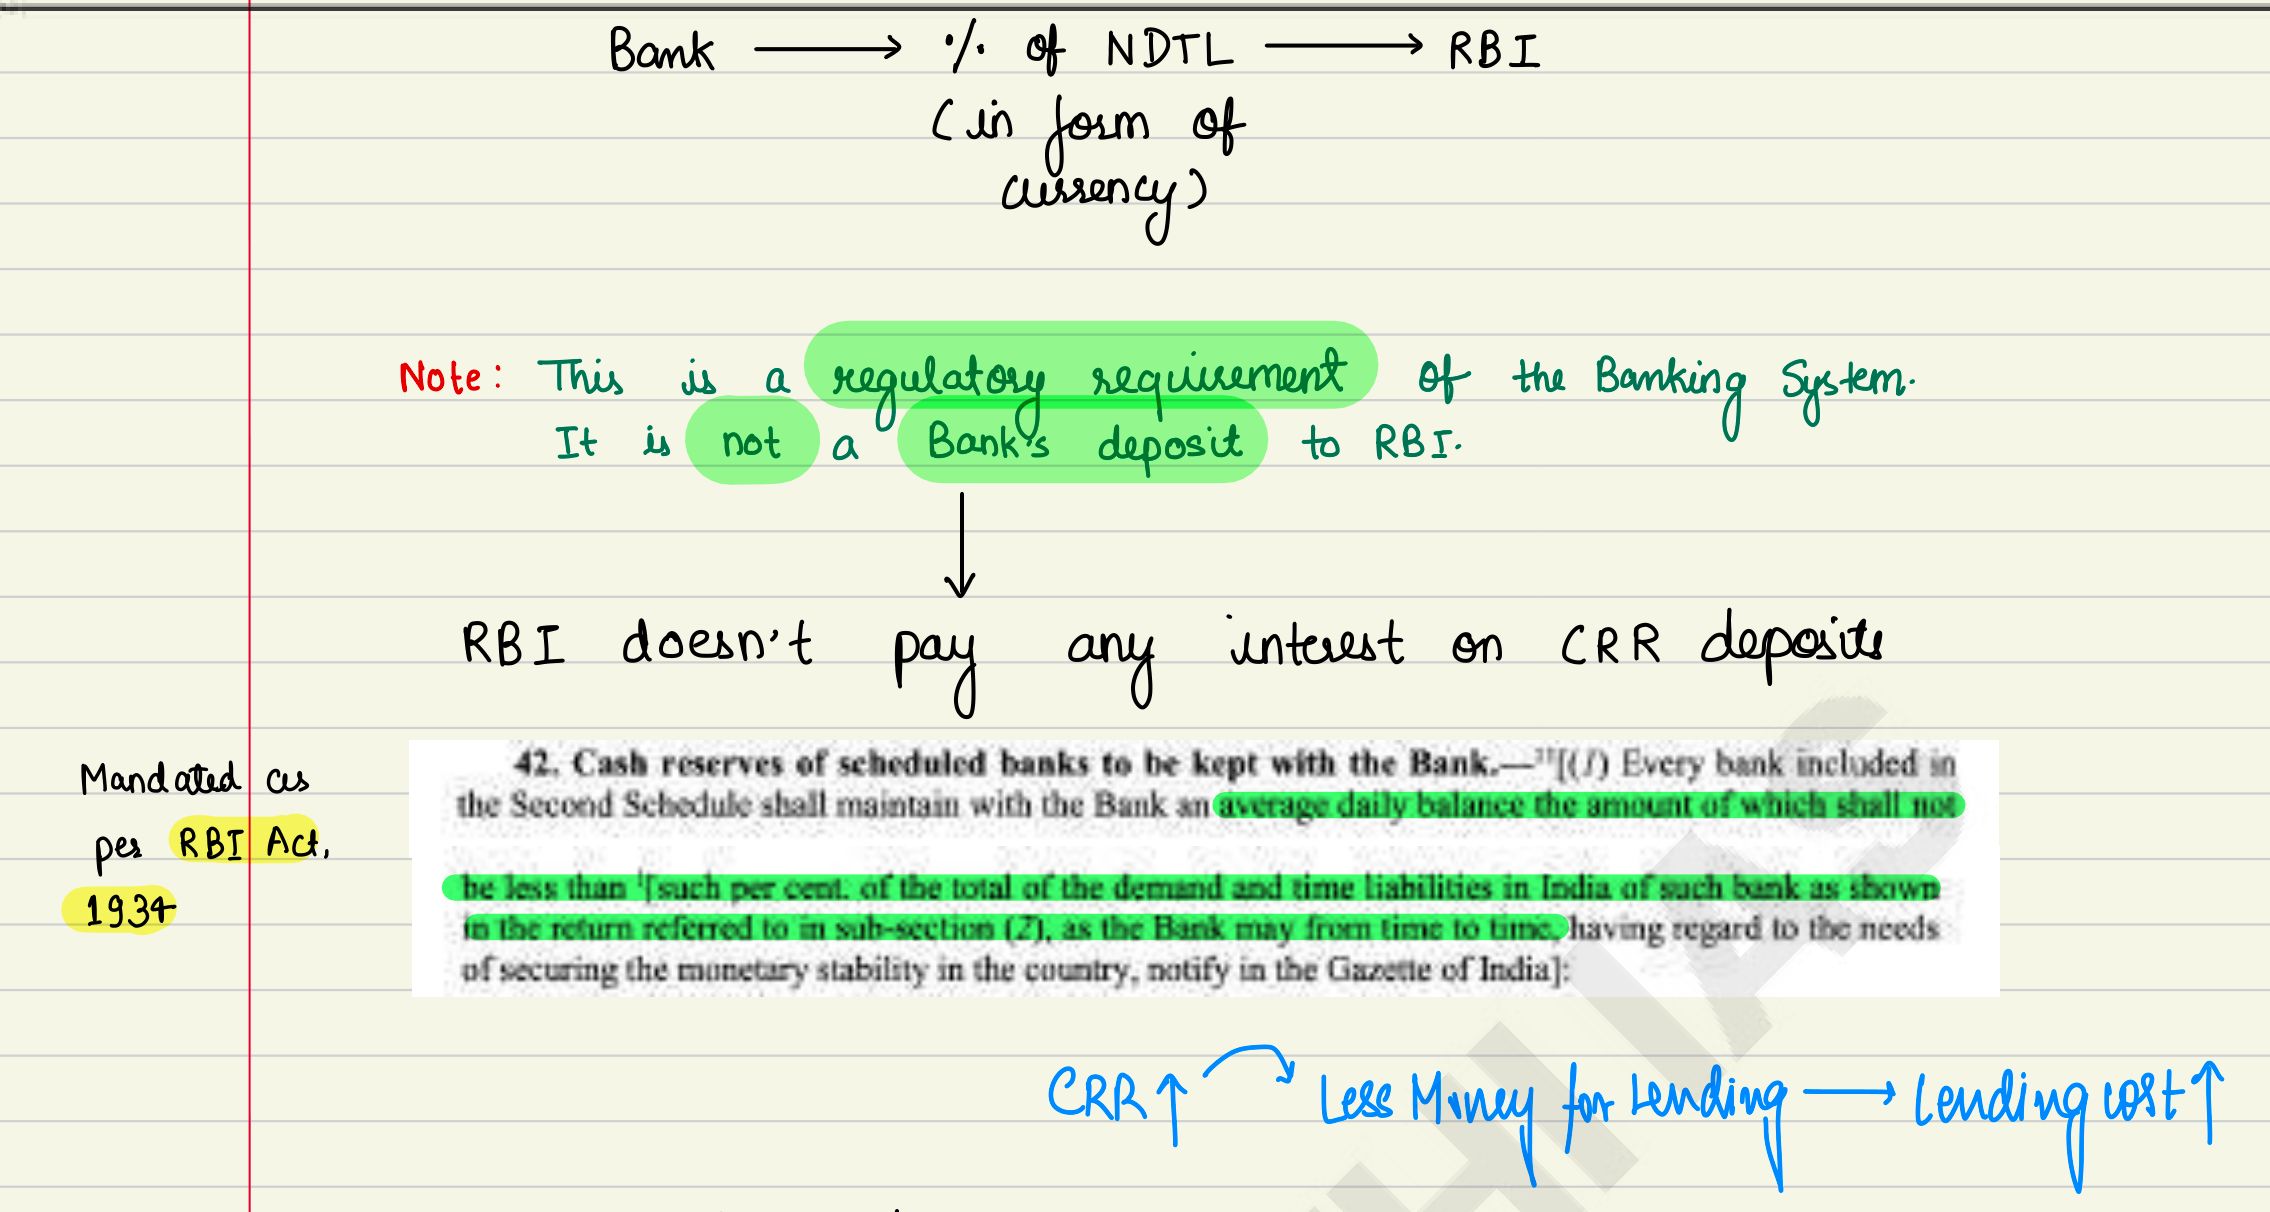 Bank → % of NDTL → RBI
(in form of
currency)
Note: This is a regulatory requirement of the Banking System.
It is not a Bank's deposit to RBI.
RBI doesn't pay any interest on CRR deposits
Mandated as
per RBI Act,
1934
42. Cash reserves of scheduled banks to be kept with the Bank.—[(1) Every bank included in
the Second Schedule shall maintain with the Bank an average daily balance the amount of which shall not
be less than ¹[such per cent. of the total of the demand and time liabilities in India of such bank as shown
in the return referred to in sub-section (2), as the Bank may from time to time, having regard to the needs
of securing the monetary stability in the country, notify in the Gazette of India]:
CRR ↑ → Less Money for Lending → Lending cost ↑